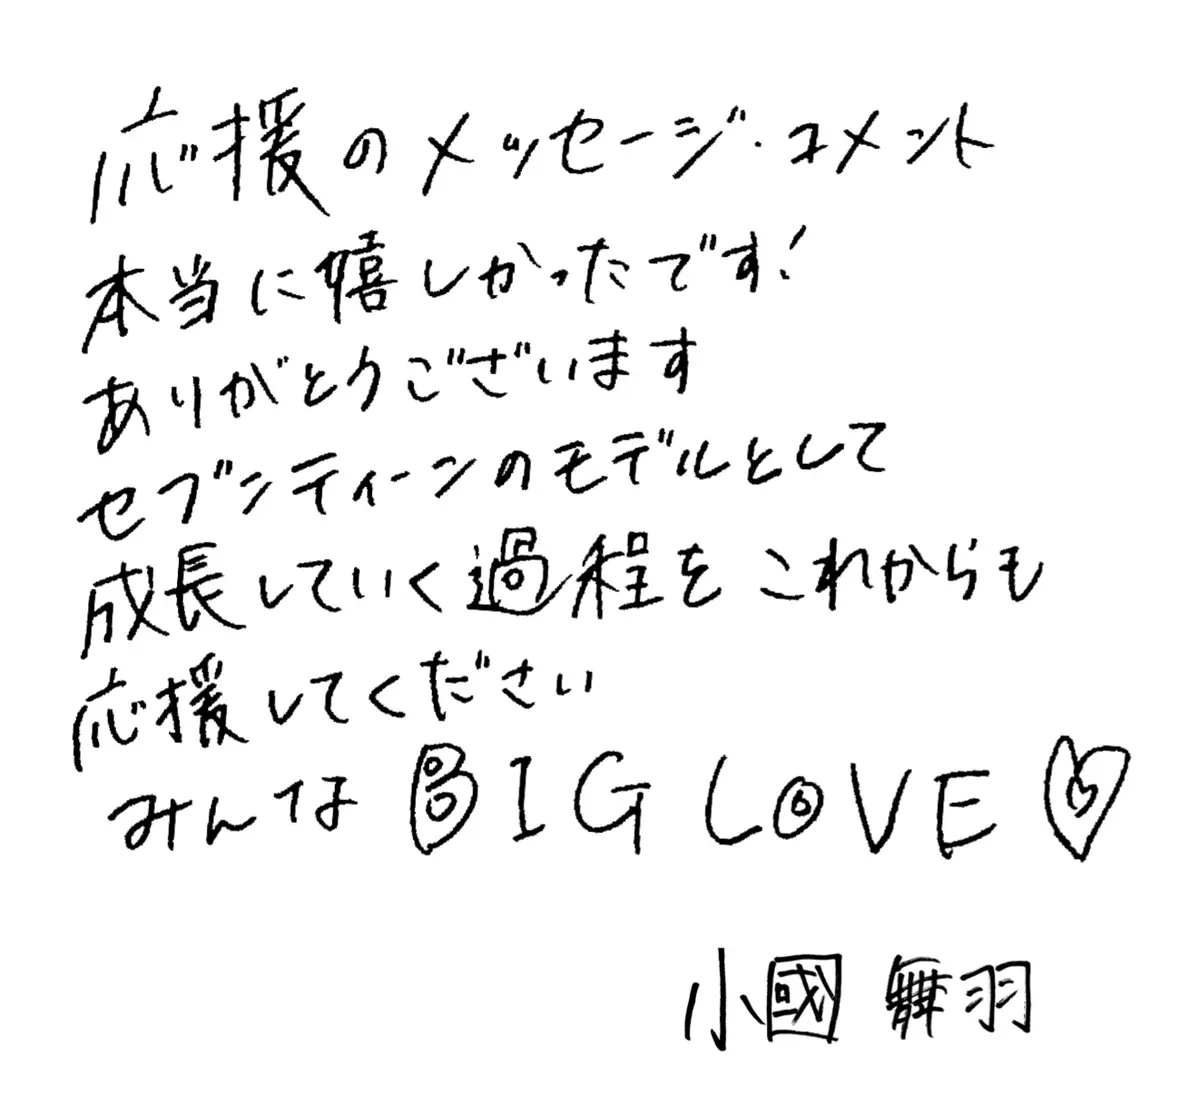 応援のメッセージ・コメント
本当に嬉しかったです!
ありがとうございます
セブンティーンのモデルとして
成長していく過程をこれからも
応援してください
みんな BIG LOVE♡
小國 舞羽